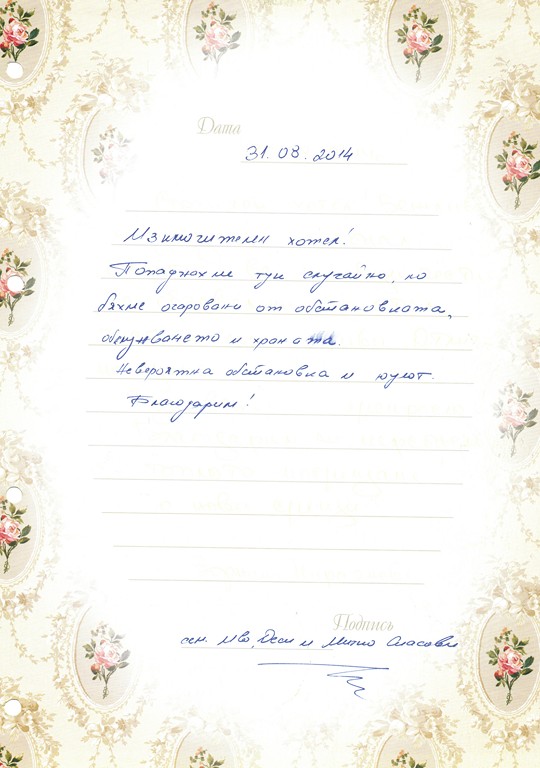 Дата
31.08.2014
Изключителен хотел!
Попаднахме тук случайно, но
бяхме очаровани от обстановката,
обслужването и храната.
Невероятна обстановка и уют.
Благодарим!
Подпись
сем. Иво, Деси и Митко Спасови